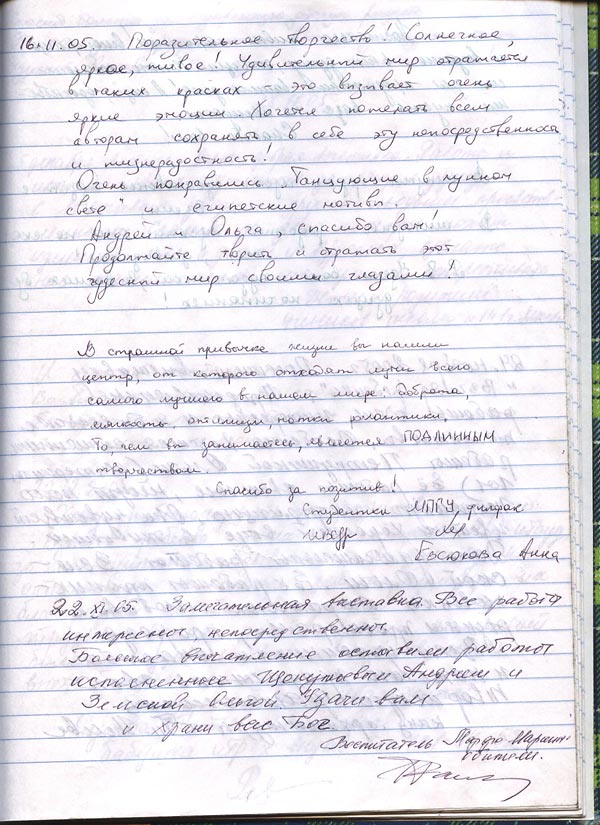 16.11.05. Поразительное творчество! Солнечное,
яркое, живое! Удивительный мир отражается
в таких красках – это вызывает очень
яркие эмоции. Хочется пожелать всем
авторам сохранять в себе эту непосредственность
и жизнерадостность!
Очень понравились „Танцующие в лунном
свете" и египетские мотивы.
Андрей и Ольга, спасибо вам!
Продолжайте творить и отражать этот
чудесный мир своими глазами!
В страшной привычке жизни вы нашли
центр, от которого отходят лучи всего
самого лучшего в нашем мире: доброта,
мягкость, оптимизм, нотки романтики.
То, чем вы занимаетесь, является ПОДЛИННЫМ
творчеством.
Спасибо за позитив!
Студентки МПГУ, филфак
Евсюкова Анна
22.XI.05. Замечательная выставка. Все работы
интересны, непосредственны.
Большое впечатление оставили работы
исполненные Андреем и
Земской Ольгой. Удачи вам
и Храни вас Бог.
Воспитатель Марфо-Мариин.
обители.